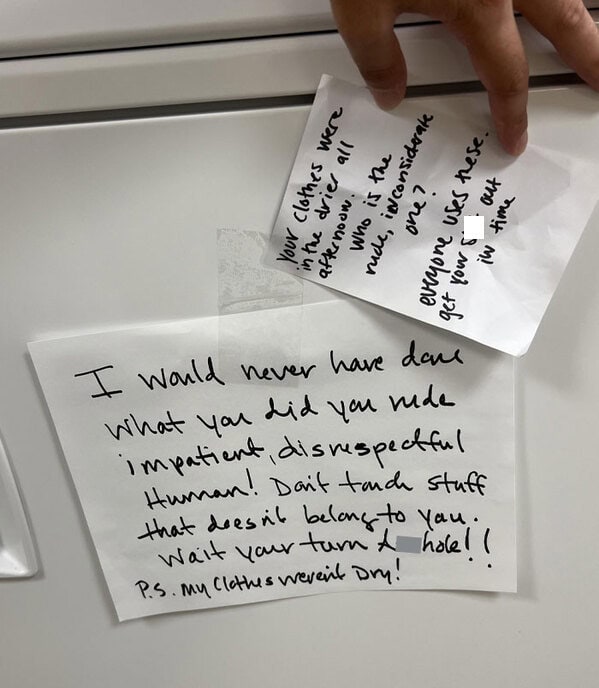 your clothes were
in the drier all
afternoon.
Who is the
rude, inconsiderate
one?
everyone uses these.
get your s out
in time
I would never have done
what you did you rude
impatient, disrespectful
Human! Don't touch stuff
that doesn't belong to you.
Wait your turn A hole!!
P.S. My clothes weren't Dry!